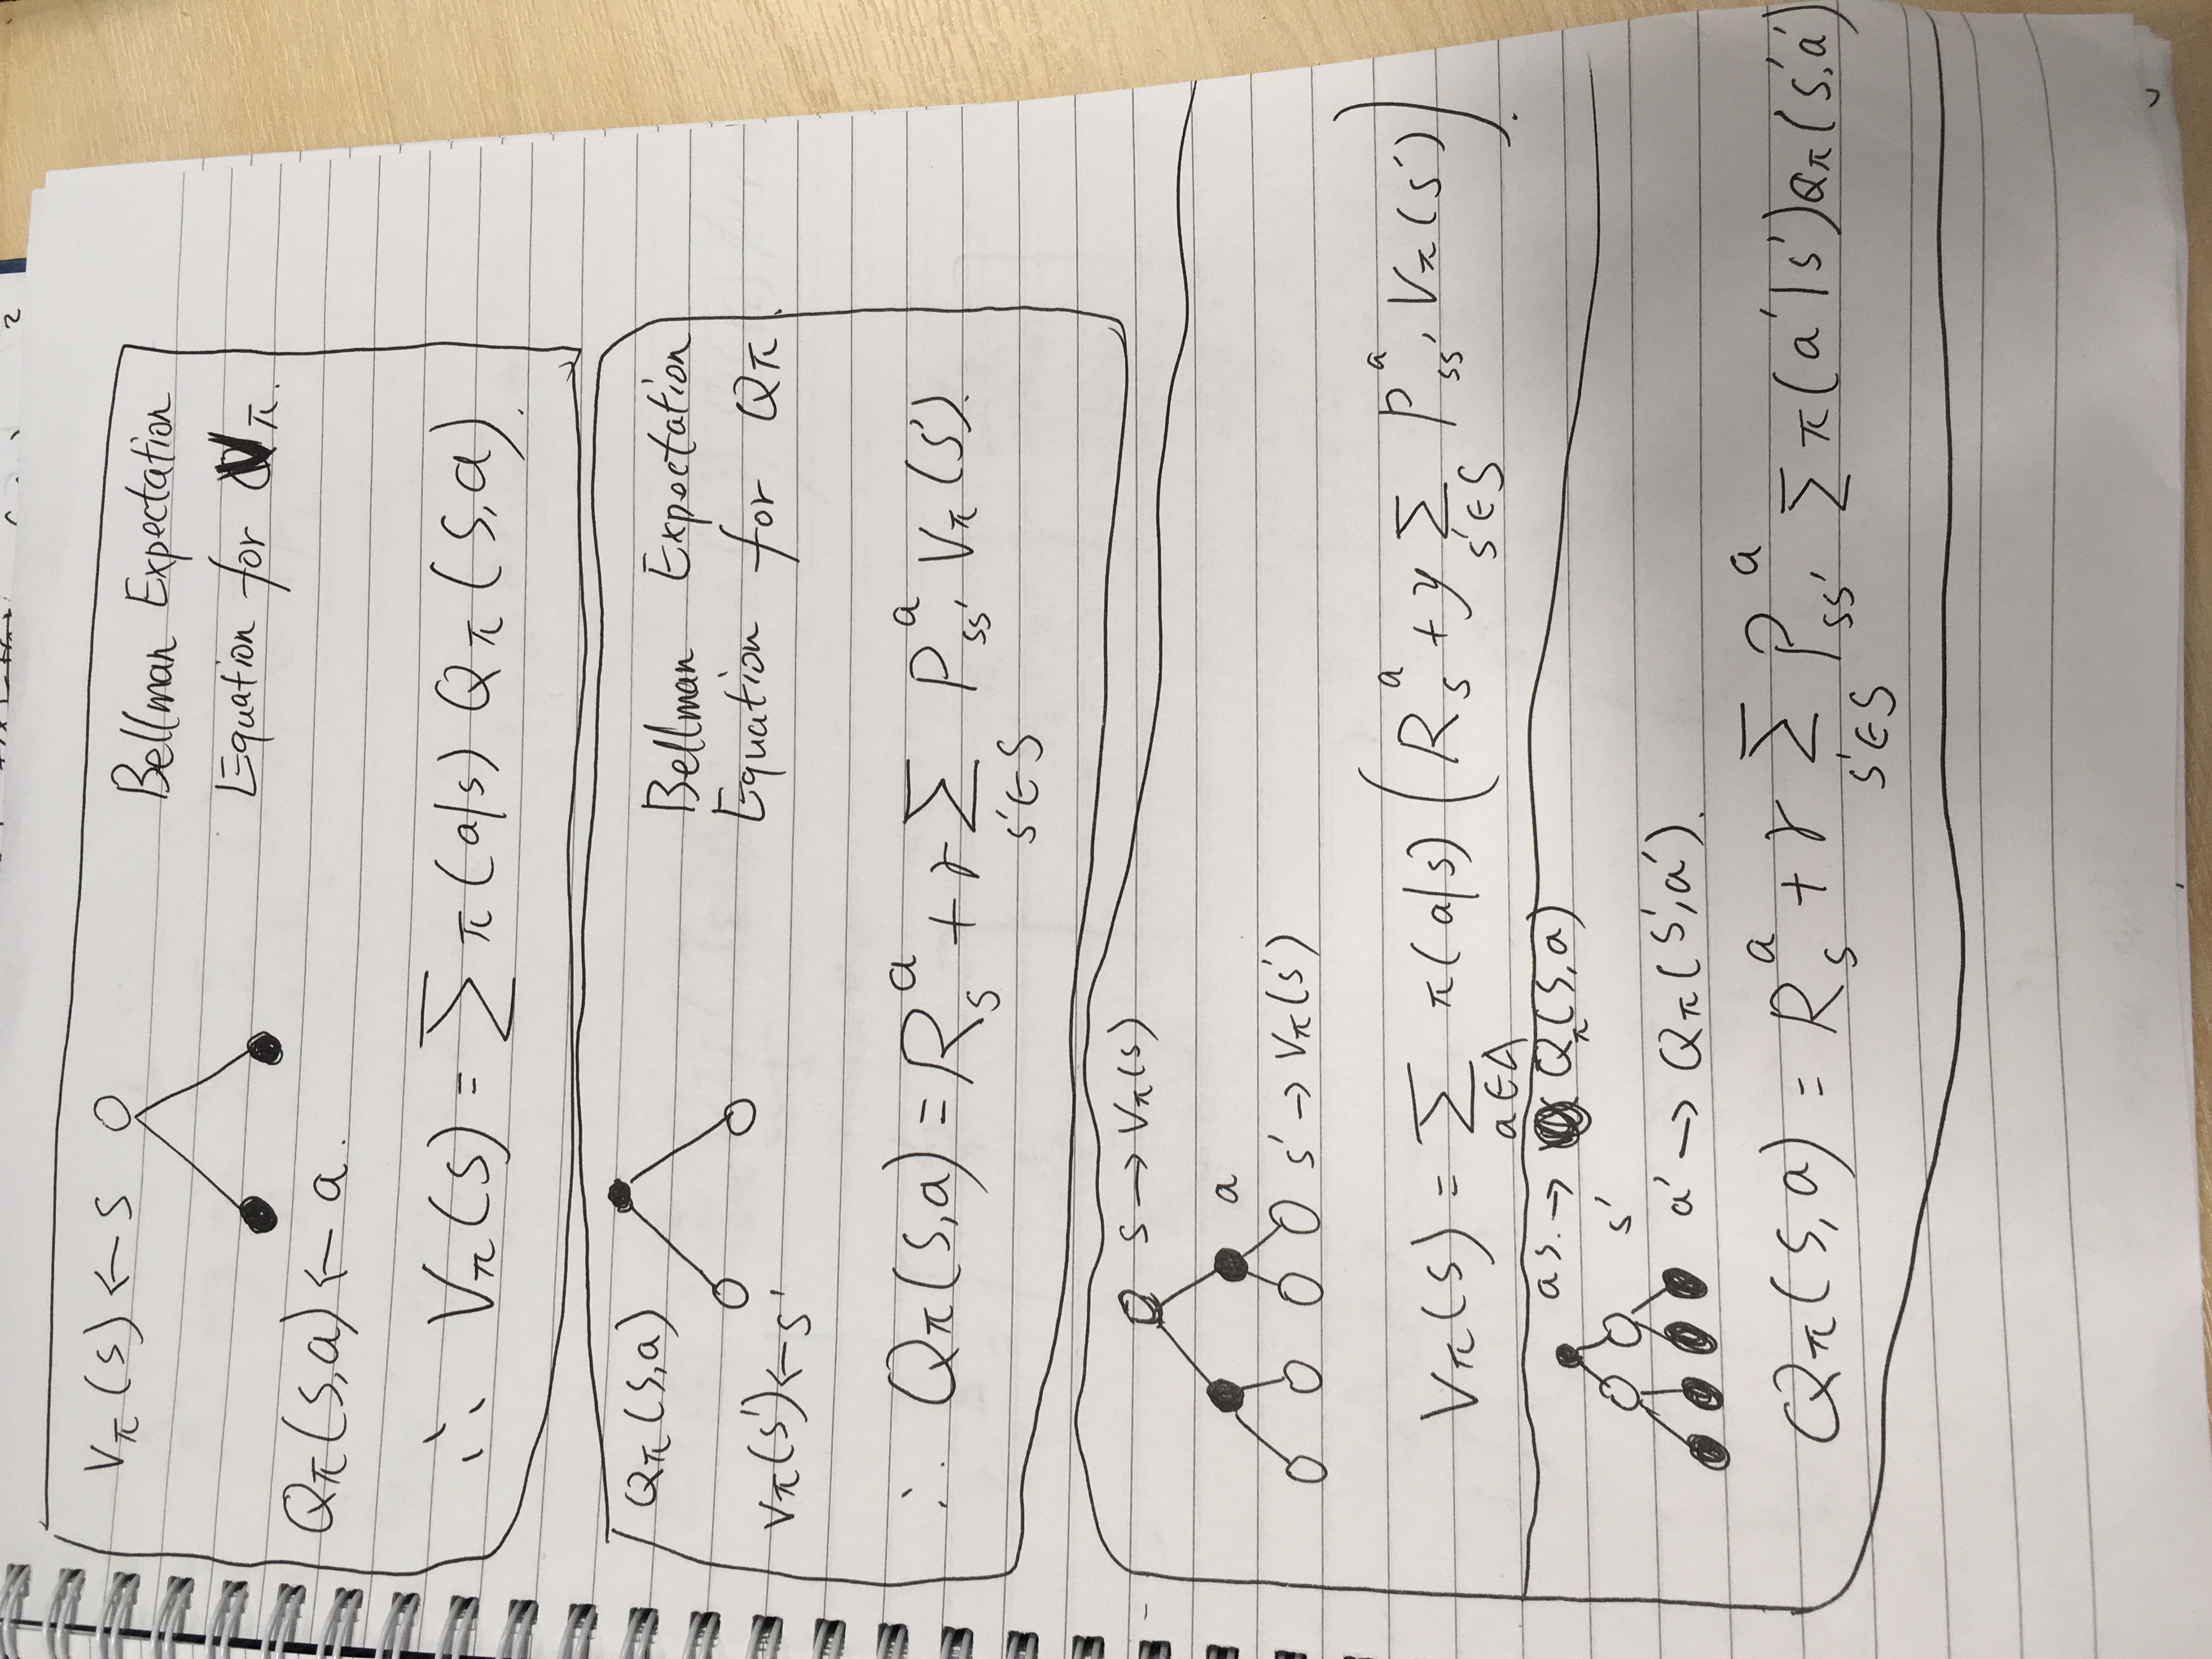 Vπ(s) ← s
Bellman Expectation
Equation for Vπ.
Qπ(s,a) ← a.
∴ Vπ(s) = ∑ π(a|s) Qπ(s,a).
Qπ(s,a)
Bellman Expectation
Equation for Qπ.
Vπ(s') ← s'
∴ Qπ(s,a) = R_s^a + γ ∑_{s'∈S} P_{ss'}^a Vπ(s').
s → Vπ(s)
a
s' → Vπ(s')
Vπ(s) = ∑_{a∈A} π(a|s) ( R_s^a + γ ∑_{s'∈S} P_{ss'}^a Vπ(s') ).
a s. → Qπ(s,a)
s'
a' → Qπ(s',a').
Qπ(s,a) = R_s^a + γ ∑_{s'∈S} P_{ss'}^a ∑ π(a'|s') Qπ(s',a')